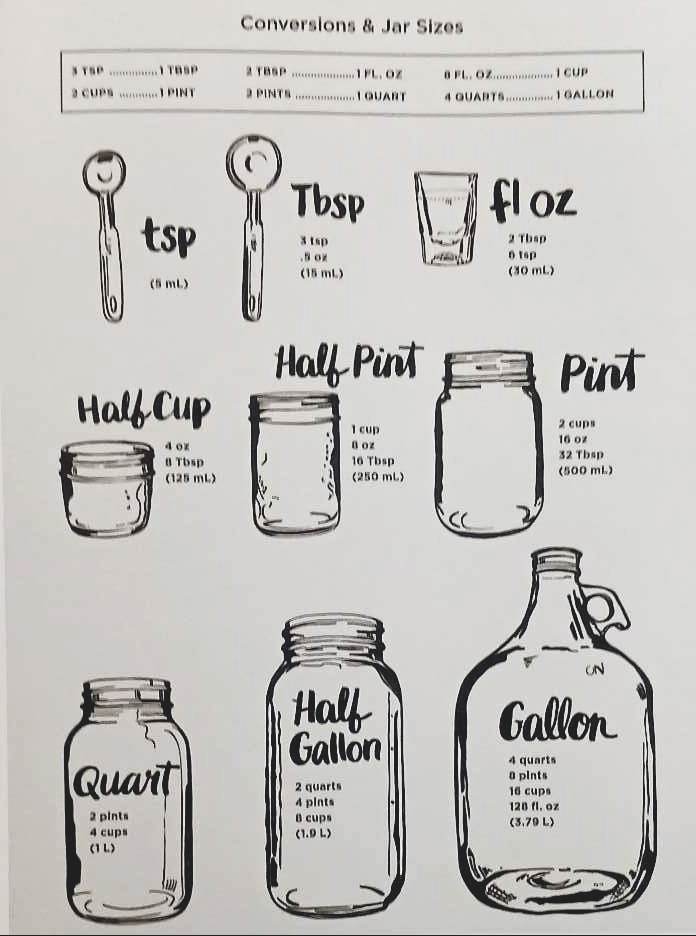 Conversions & Jar Sizes
3 TSP ............1 TBSP
2 TBSP ................1 FL. OZ
8 FL. OZ...............1 CUP
2 CUPS ..........1 PINT
2 PINTS ...............1 QUART
4 QUARTS............1 GALLON
tsp
(5 mL)
Tbsp
3 tsp
.5 oz
(15 mL)
fl oz
2 Tbsp
6 tsp
(30 mL)
Half Cup
4 oz
8 Tbsp
(125 mL)
Half Pint
1 cup
8 oz
16 Tbsp
(250 mL)
Pint
2 cups
16 oz
32 Tbsp
(500 mL)
Quart
2 pints
4 cups
(1 L)
Half
Gallon
2 quarts
4 pints
8 cups
(1.9 L)
Gallon
4 quarts
8 pints
16 cups
128 fl. oz
(3.79 L)